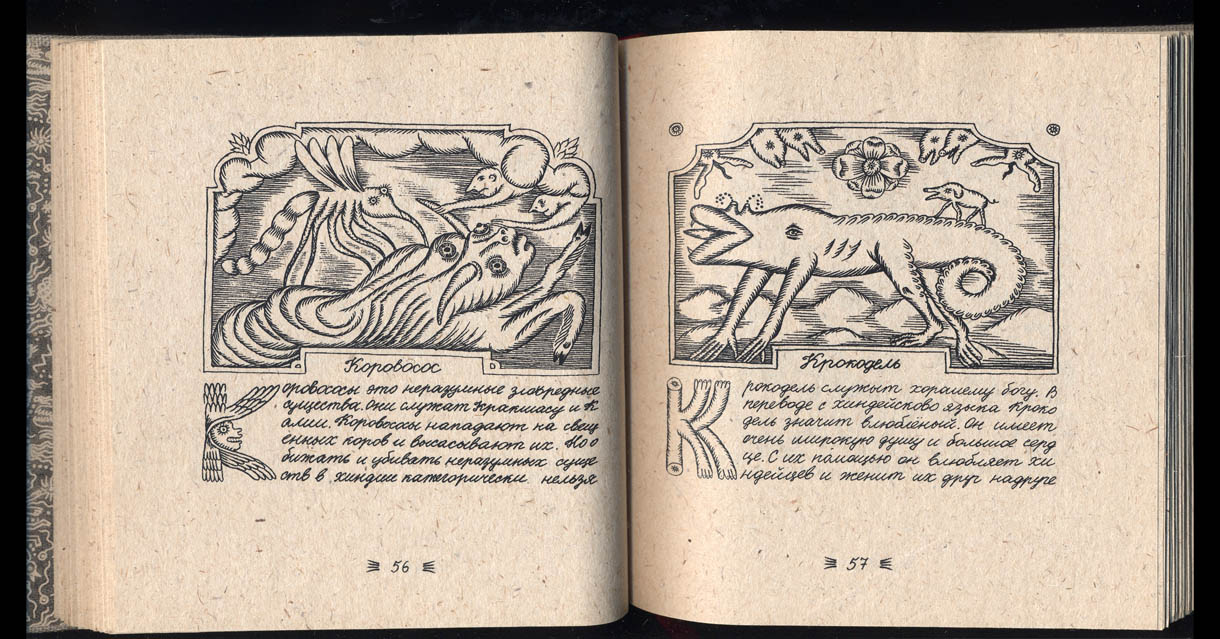 Коровосос
Коровососы это неразумные зловредные
существа. Они служат Крапшасу и К
алии. Коровососы нападают на свещ
енных коров и высасывают их. Но о
бижать и убивать неразумных суще
ств в хиндии категорически нельзя
56
Крокодель
Крокодель служыт хорашему богу. В
переводе с хиндейсково языка Кроко
дель значит влюблёный. Он имеет
очень широкую душу и большое серд
це. С их помощью он влюбляет хи
ндейцев и женит их друг надруге
57